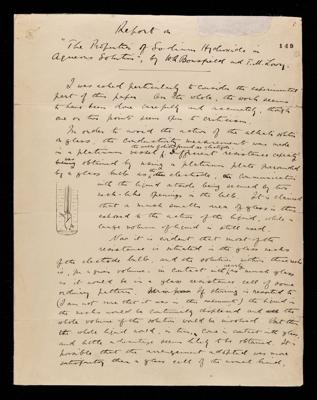 Report on
149
"The Properties of Sodium Hydroxide in
Aqueous Solution", by W.R. Bousfield and T.M. Lowry.
I was asked particularly to consider the experimental
part of this paper. On the whole, the work seems
to have been done carefully and accurately, though
one or two points seem open to criticism.
In order to avoid the action of the alkaline solution
on glass, the conductivity measurement was made
in a platinum vessel,
being obtained by using a platinum plate surrounded
by a glass bulb as the electrode, the communication
with the liquid outside being secured by two
openings in the bulb. It is claimed
that a much smaller area of glass is thus
exposed to the action of the liquid, while a
large volume of liquid is still used.
Now it is evident that most of the
resistance is situated in the glass necks
of the electrode bulb, and the solution within these necks
is, for a given volume, in contact with as much glass
as it would be in a glass resistance cell of some
ordinary pattern. If some means of stirring is resorted to
(I am not sure that it was in this instrument) the liquid in
the necks would be continually displaced and the
whole volume of the solution would be involved. But then
the whole liquid would, in time, come in contact with glass,
and little advantage seems likely to be obtained. It is
possible that the arrangement adopted was more
satisfactory than a glass cell of the usual kind,